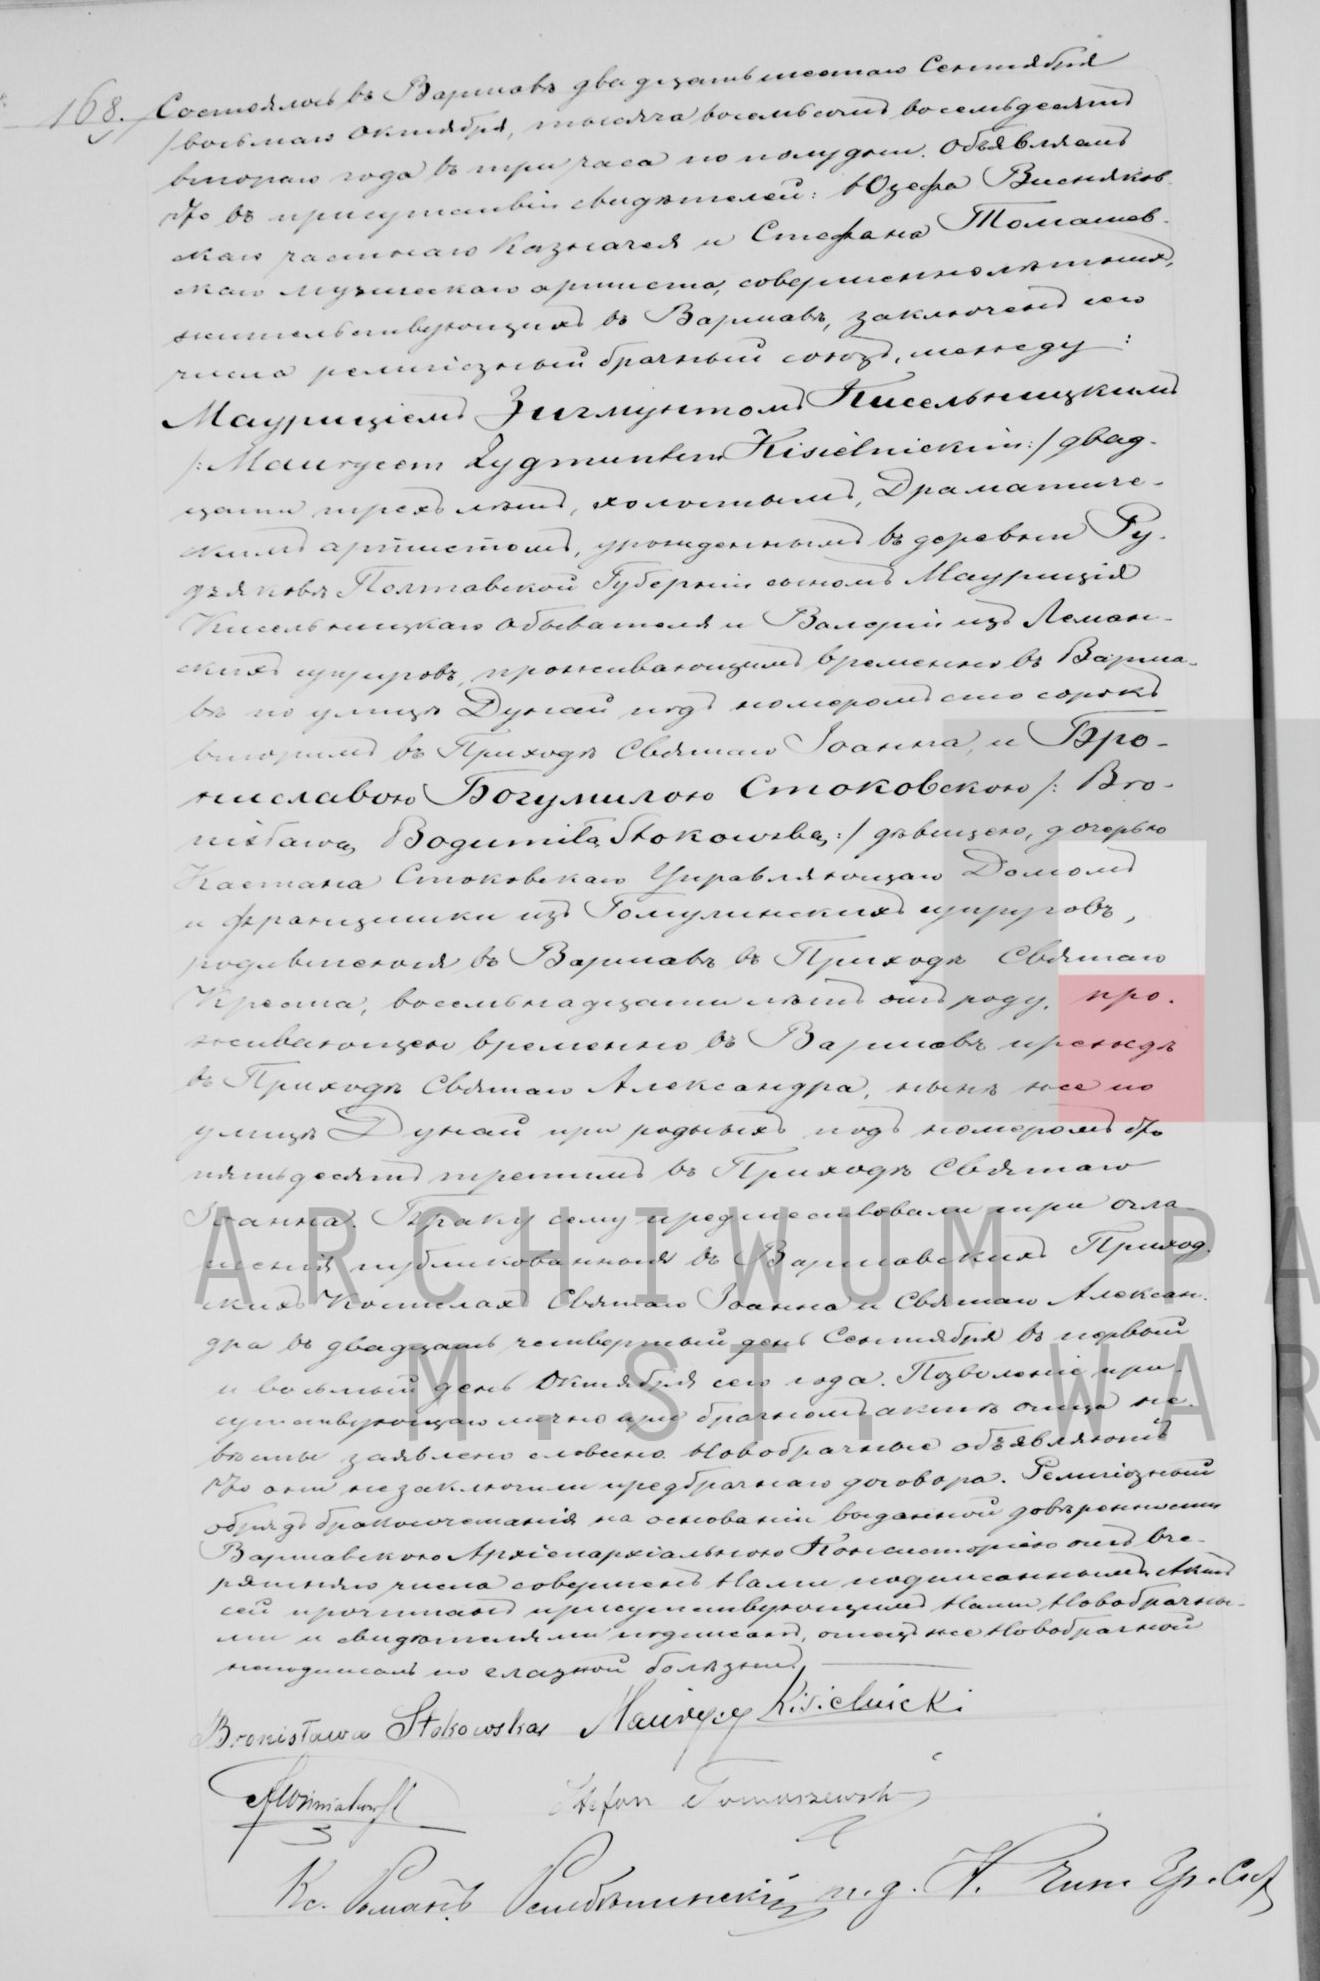 168. Состоялось въ Варшавѣ двадцать шестаго Сентября
/восьмаго Октября, тысяча восемьсотъ восемьдесятъ
втораго года въ три часа по полудни. Объявляемъ
что въ присутствіи свидѣтелей: Юзефа Висняков-
скаго частнаго Казначея и Стефана Томашев-
скаго музыческаго артиста, совершеннолѣтнихъ,
жительствующихъ въ Варшавѣ, заключенъ сего
числа религіозный брачный союзъ, между:
Маурицiемъ Зигмунтомъ Кисельницкимъ
/:Maurycem Zygmuntem Kisielnickim:/ двад-
цати трехъ лѣтъ, холостымъ, Драматиче-
скимъ артистомъ, урожденнымъ въ деревни Ру-
Полтавской Губерніи сыномъ Мауриція
Кисельницкаго Обывателя и Валеріи изъ Леман-
скихъ супруговъ, проживающимъ временно въ Варша-
вѣ по улицѣ Дунай подъ номеромъ сто сорокъ
вторымъ въ Приходѣ Святаго Іоанна, и Бро-
ниславою Богумилою Стоковскою /: Bro-
nisławą Bogumiłą Stokowską:/ дѣвицею, дочерью
Каетана Стоковскаго Управляющаго Домомъ
и Францишки изъ Гомулинскихъ супруговъ,
родившеюся въ Варшавѣ въ Приходѣ Святаго
Креста, восемьнадцати лѣтъ отъ роду, про-
живающею временно въ Варшавѣ прежде
въ Приходѣ Святаго Александра, нынѣ же по
улицѣ Дунай при родныхъ подъ номеромъ сто
пятьдесятъ третимъ въ Приходѣ Святаго
Іоанна. Браку сему предшествовали три огла-
шенія публикованныя въ Варшавскихъ Приход-
скихъ Костелахъ Святаго Іоанна и Святаго Алексан-
дра въ двадцать четвертый день Сентября въ первый
и восьмый день Октября сего года. Позволеніе при-
сутствующаго лично при брачномъ актѣ отца не-
вѣсты заявлено словесно. Новобрачные объявляютъ
что они незаключили предбрачнаго договора. Религіозный
обрядъ бракосочетанія на основаніи выданной довѣренности
Варшавскою Архіепархіальною Консисторіею отъ вче-
рашняго числа совершенъ Нами подписаннымъ. Актъ
сей прочитанъ присутствующимъ Нами Новобрачны-
ми и свидѣтелями подписанъ, отецъ же Новобрачной
неподписалъ по глазной болѣзни.
Bronisława Stokowska Maurycy Kisielnicki
Stefan Tomaszewski
Кс. Романъ п.д. Ч. Чин. Гр. Сост
ARCHIWUM PA
M. ST. WAR